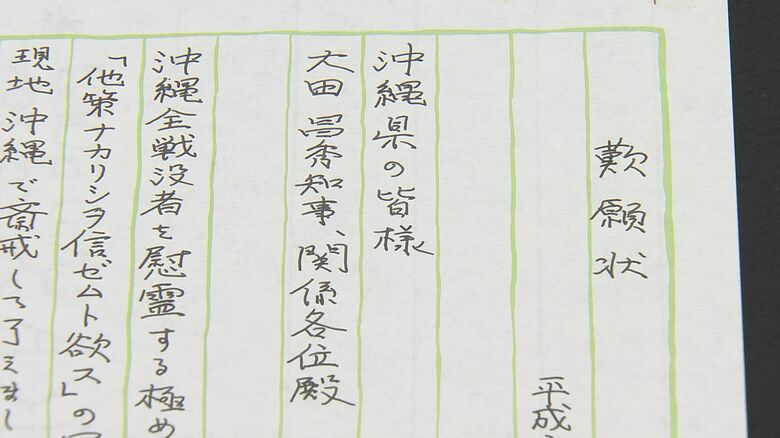 歎願状
平成
沖縄県の皆様
大田昌秀知事、関係各位殿
沖縄全戦没者を慰霊する極め
「他策ナカリシヲ信ゼムト欲ス」の
現地沖縄で斎戒して了えまし